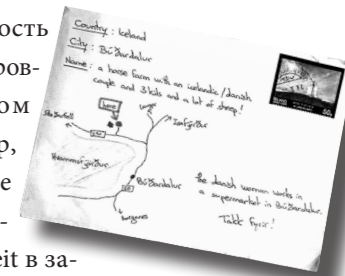 ность
ров-
ом
р,
е
-
eit в за-
Country: Iceland
City: Búðardalur
Name: a horse farm with an icelandic/danish
couple and 3 kids and a lot of sheep!
here
Ísafjörður
Hvammsfjörður
Búðardalur
Borgarnes
the danish woman works in
a supermarket in Búðardalur.
Takk fyrir!